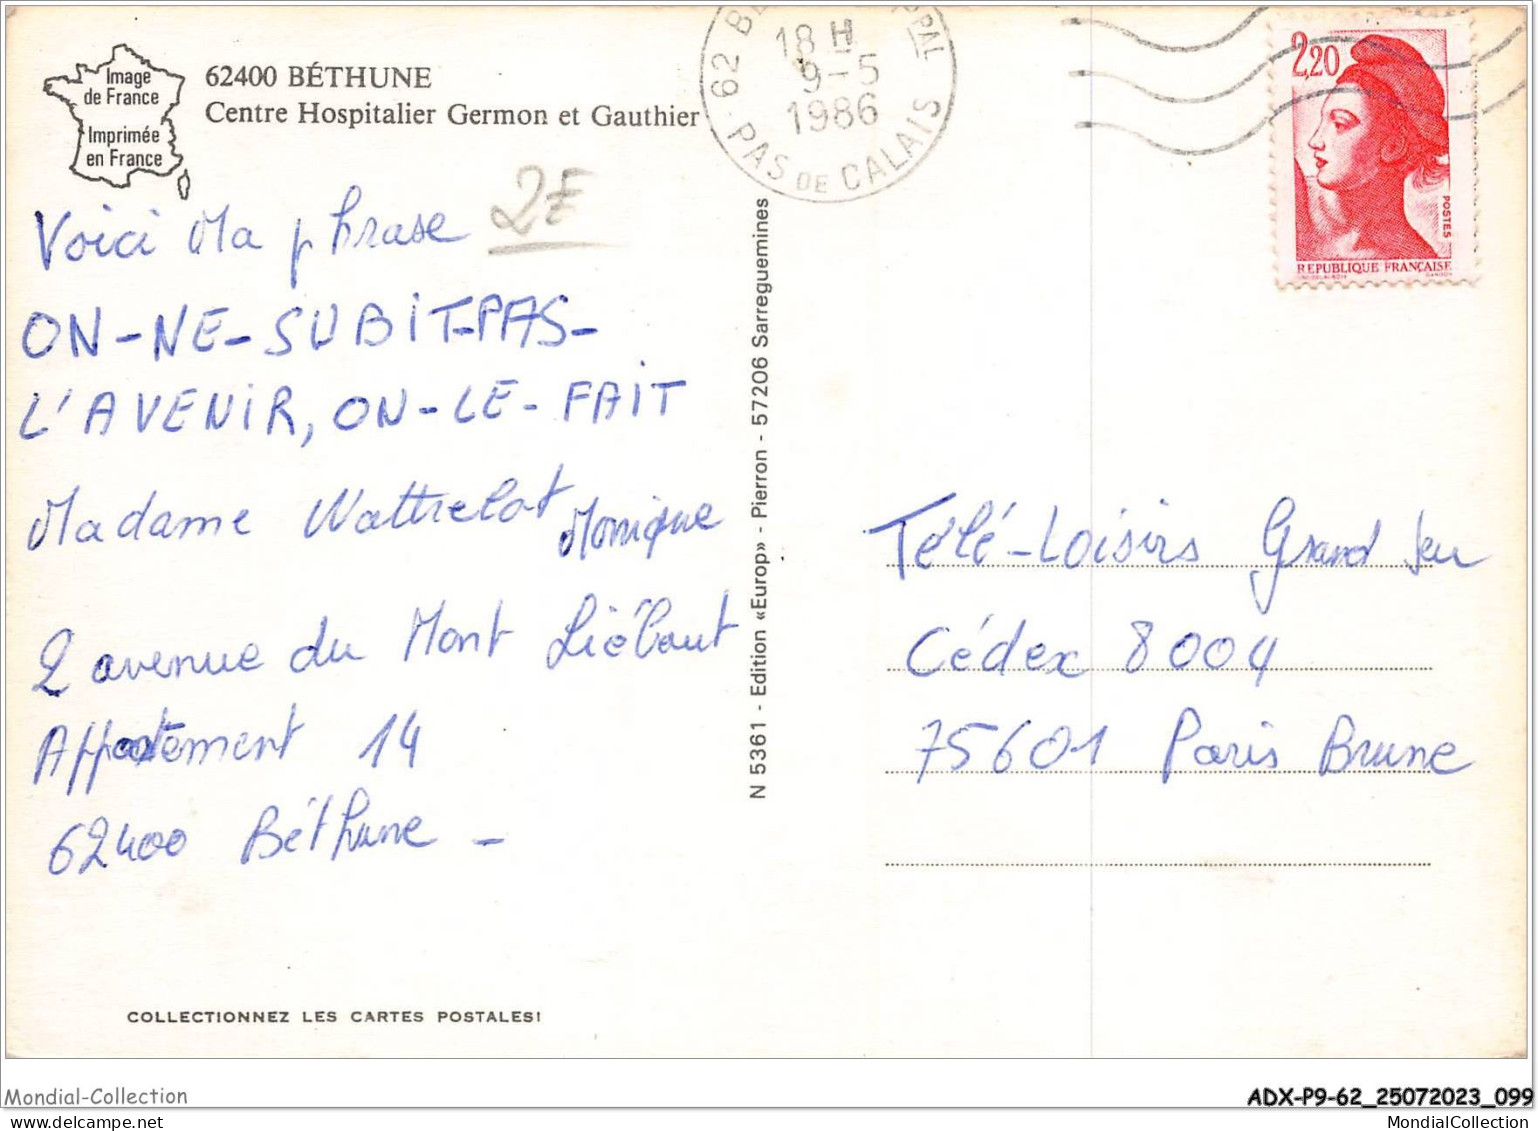 Image
de France
Imprimée
en France
62400 BÉTHUNE
Centre Hospitalier Germon et Gauthier
18 H
9-5
1986
62
PPAL
PAS DE CALAIS
2,20
POSTES
REPUBLIQUE FRANÇAISE
2F
Voici Ma phrase
ON-NE-SUBIT-PAS-
L'AVENIR, ON-LE-FAIT
Madame Wattrelot Monique
2 avenue du Mont Liébaut
Appartement 14
62400 Béthune -
N 5361 - Edition «Europ» - Pierron - 57206 Sarreguemines
Télé-Loisirs Grand Jeu
Cédex 8004
75601 Paris Brune
COLLECTIONNEZ LES CARTES POSTALES!
Mondial-Collection
ADX-P9-62_25072023_099
www.delcampe.net
MondialCollection